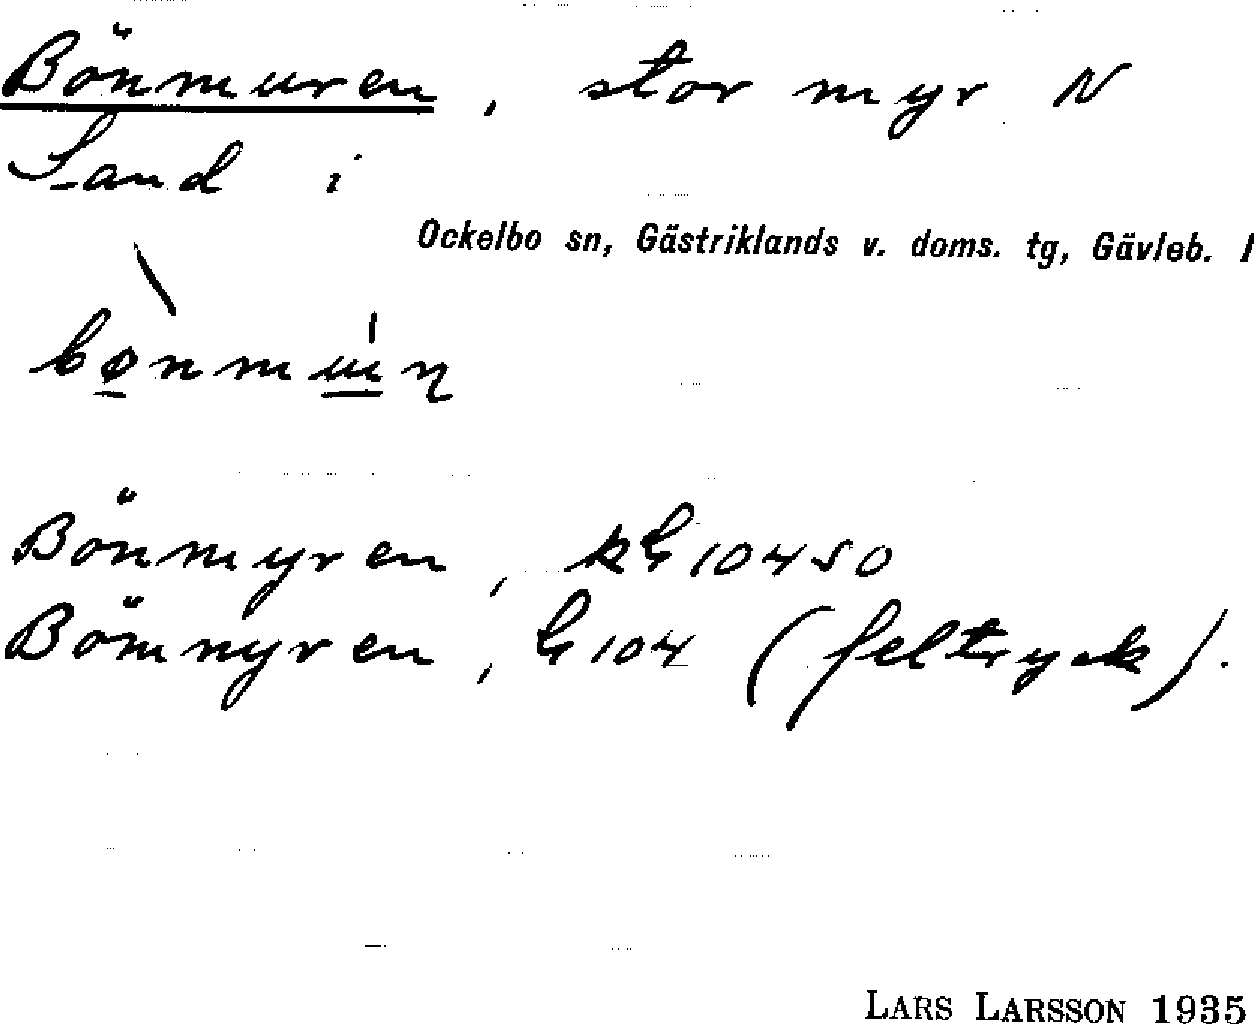 Bönmuren, stor myr N
Sand i
Ockelbo sn, Gästriklands v. doms. tg, Gävleb. l
Bönmyren, kG10450
Bömnyren, G104 (feltryck).
LARS LARSSON 1935